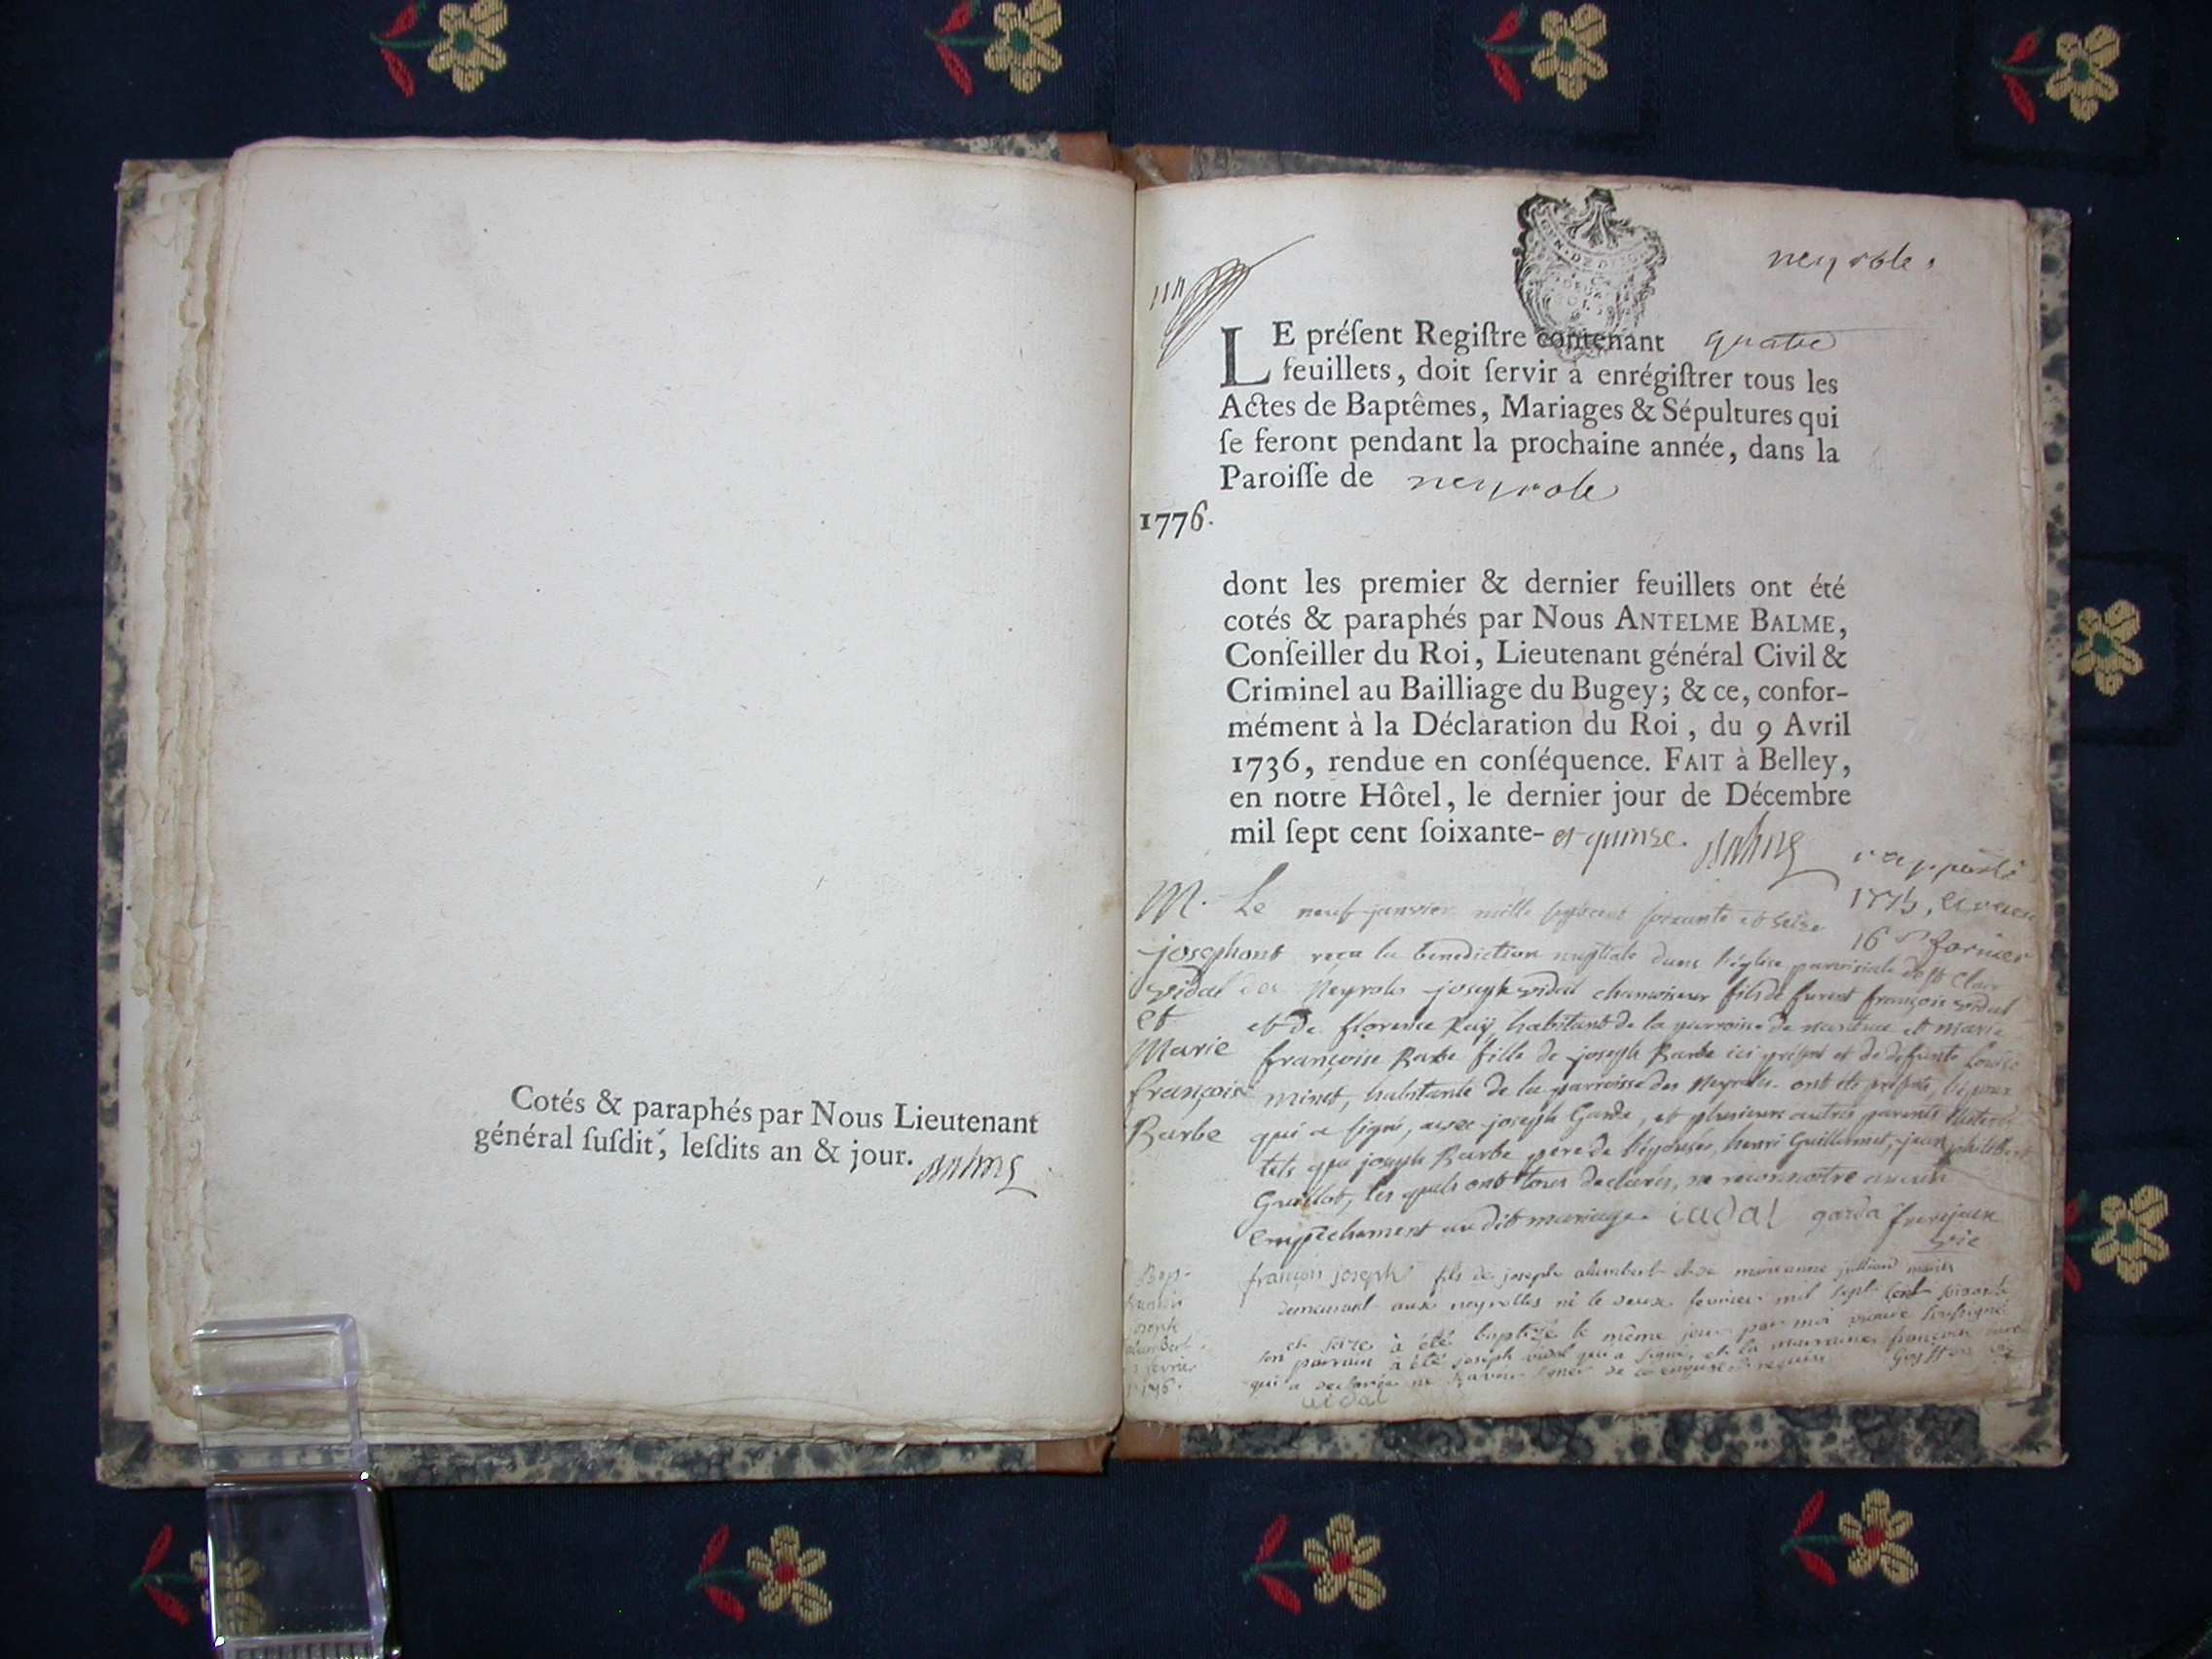 Cotés & paraphés par Nous Lieutenant
général ſuſdit, leſdits an & jour.
neyrole.
LE préſent Regiſtre contenant quatre
feuillets, doit ſervir à enrégiſtrer tous les
Actes de Baptêmes, Mariages & Sépultures qui
ſe feront pendant la prochaine année, dans la
Paroiſſe de neyrole
1776.
dont les premier & dernier feuillets ont été
cotés & paraphés par Nous ANTELME BALME,
Conſeiller du Roi, Lieutenant général Civil &
Criminel au Bailliage du Bugey; & ce, confor-
mément à la Déclaration du Roi, du 9 Avril
1736, rendue en conſéquence. FAIT à Belley,
en notre Hôtel, le dernier jour de Décembre
mil ſept cent ſoixante- et quinze.
M. Le neuf janvier mille sept cent soixante et seize
joseph ont reçu la benediction nuptiale dans l'église paroissiale de st Clair
vidal des Neyroles joseph vidal chanvrier fils de françois vidal
et et de florence Ray, habitant de la parroisse de nantua et marie
Marie françoise Barbe fille de joseph Barbe ici présent et de defunte Louise
françoise minet, habitante de la parroisse des Neyroles ont été
Barbe qui a signé, avec joseph Garda, et plusieurs autres parents
tels que joseph Barbe pere de l'épouse, henri Guillermet, jean philibert
Guillot, les quels ont tous declarés, ne reconnoître aucun
Empêchement au dit mariage. vidal garda
françois joseph fils de joseph alembert et de marianne mariés
demeurant aux neyrolles né le deux fevrier mil sept cent soixante
et seize à été baptizé le même jour par moi vicaire soussigné
son parrain à été joseph vidal qui a signé, et la marraine françoise
qui a declarée ne savoir signer de ce enquise et requise
vidal